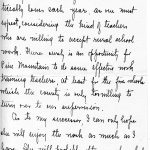 tically born each year as one must
expect, considering the kind of teachers
who are willing to accept rural school
work. Here surely is an opportunity for
Pine Mountain to do some effective work
training teachers, at least for the five schools
which the county is only too willing to
turn over to our supervision.
As to my successor, I can only hope
she will enjoy the work as much as I
have. She will